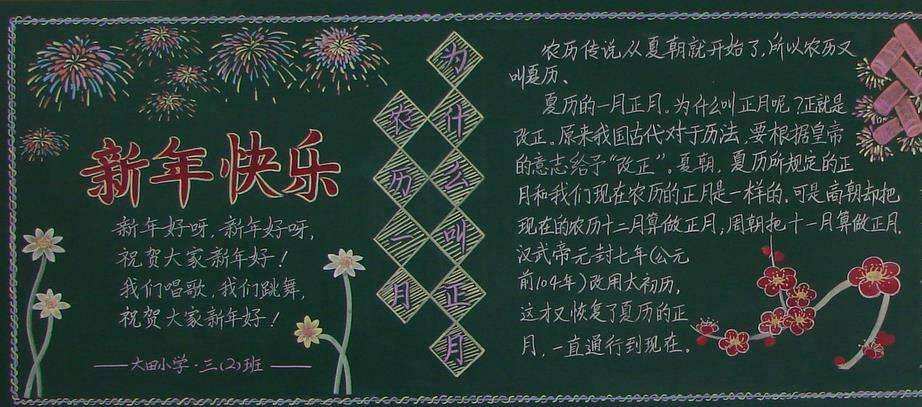 新年快乐
新年好呀,新年好呀,
祝贺大家新年好!
我们唱歌,我们跳舞,
祝贺大家新年好!
大田小学·三(2)班
农历一月
为什么叫正月
农历传说从夏朝就开始了,所以农历又
叫夏历、
夏历的一月正月。为什么叫正月呢?正就是
改正。原来我国古代对于历法,要根据皇帝
的意志给予“改正”。夏朝,夏历所规定的正
月和我们现在农历的正月是一样的,可是商朝却把
现在的农历十二月算做正月,周朝把十一月算做正月。
汉武帝元封七年(公元
前104年)改用太初历,
这才又恢复了夏历的正
月,一直通行到现在。